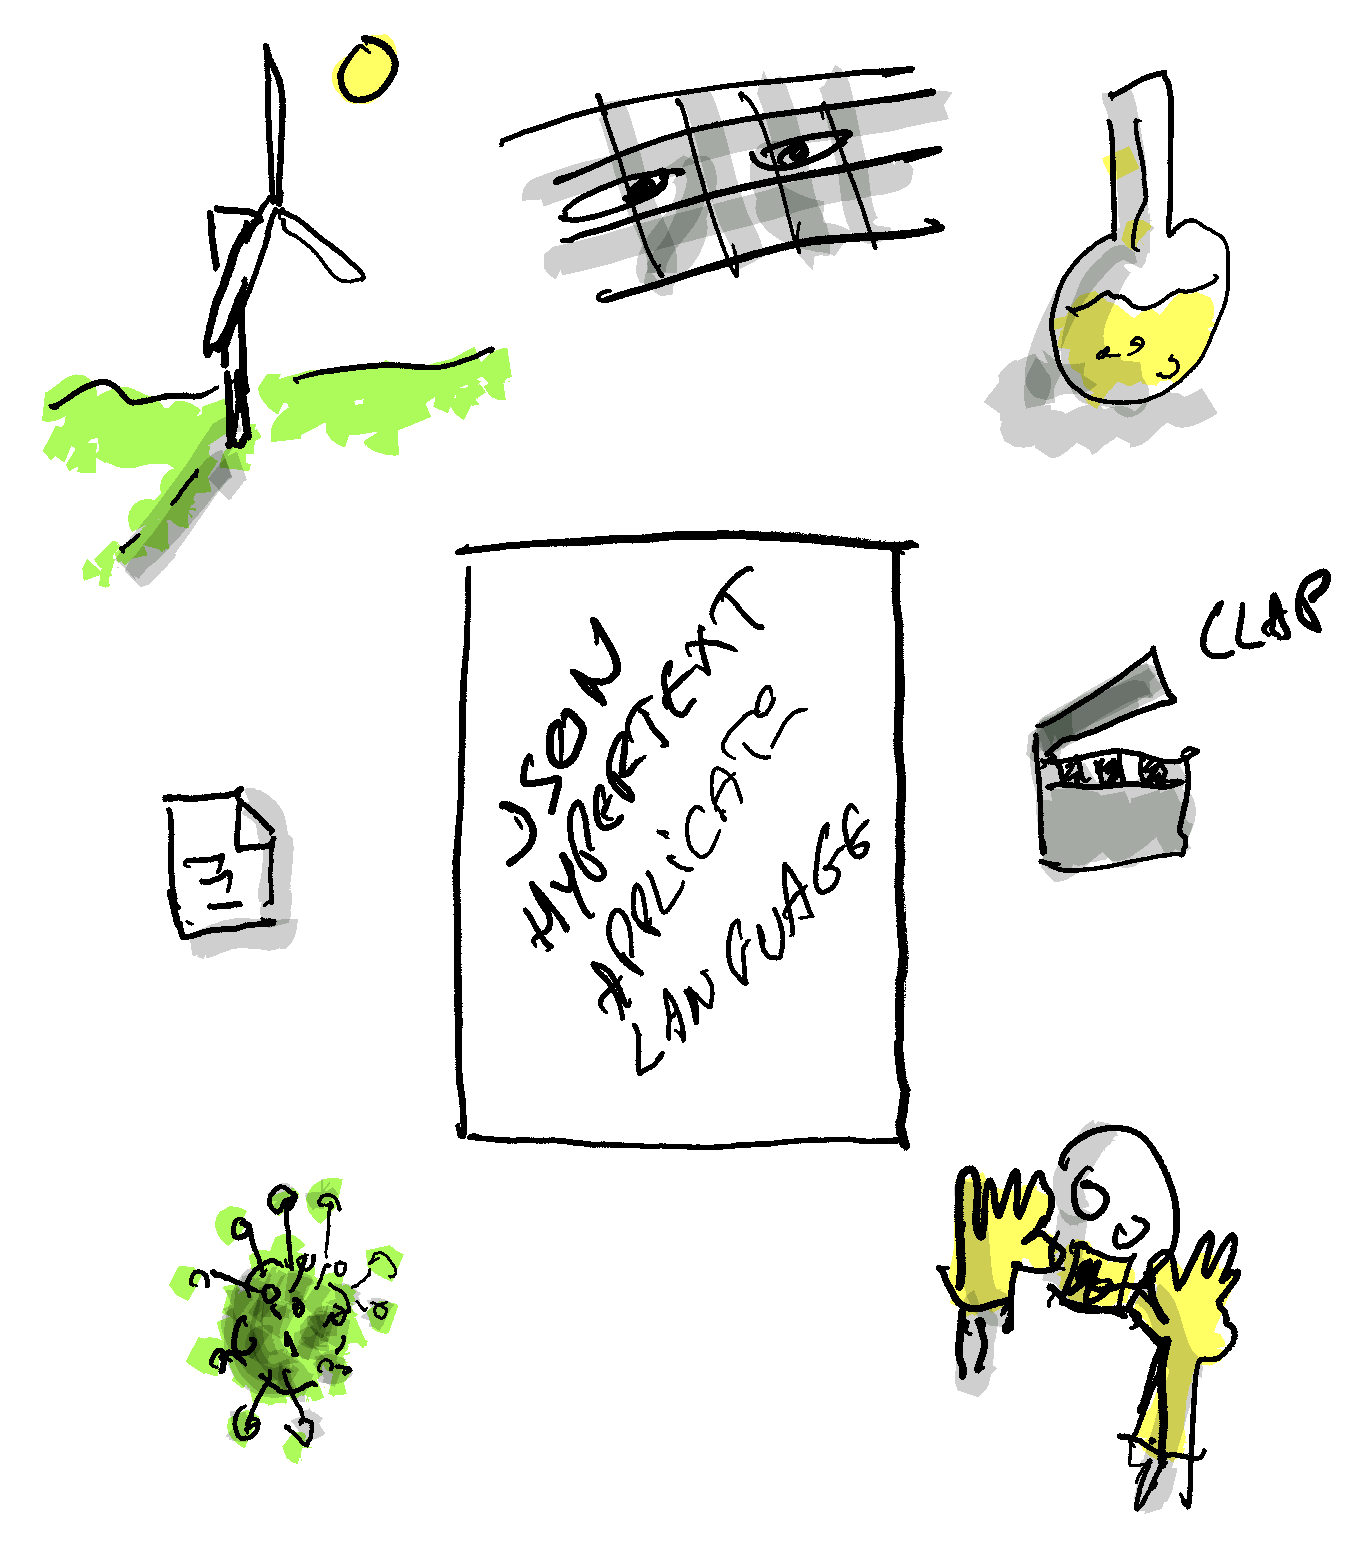 JSON
HYPERTEXT
APPLICATO
LANGUAGE
CLAP